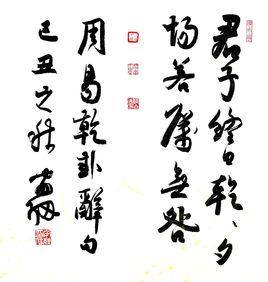 君子终日乾、夕
惕若厲无咎
周易乾卦辭句
己丑之秋